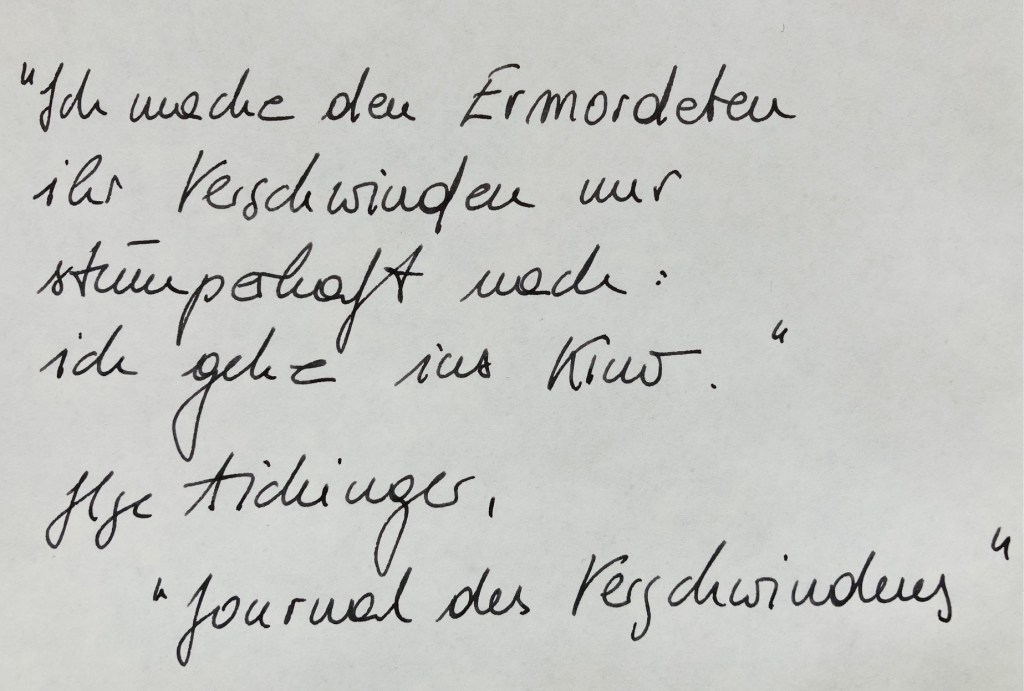 "Ich mache den Ermordeten
ihr Verschwinden nur
stümperhaft nach:
ich gehe ins Kino."
Ilse Aichinger,
"Journal des Verschwindens"